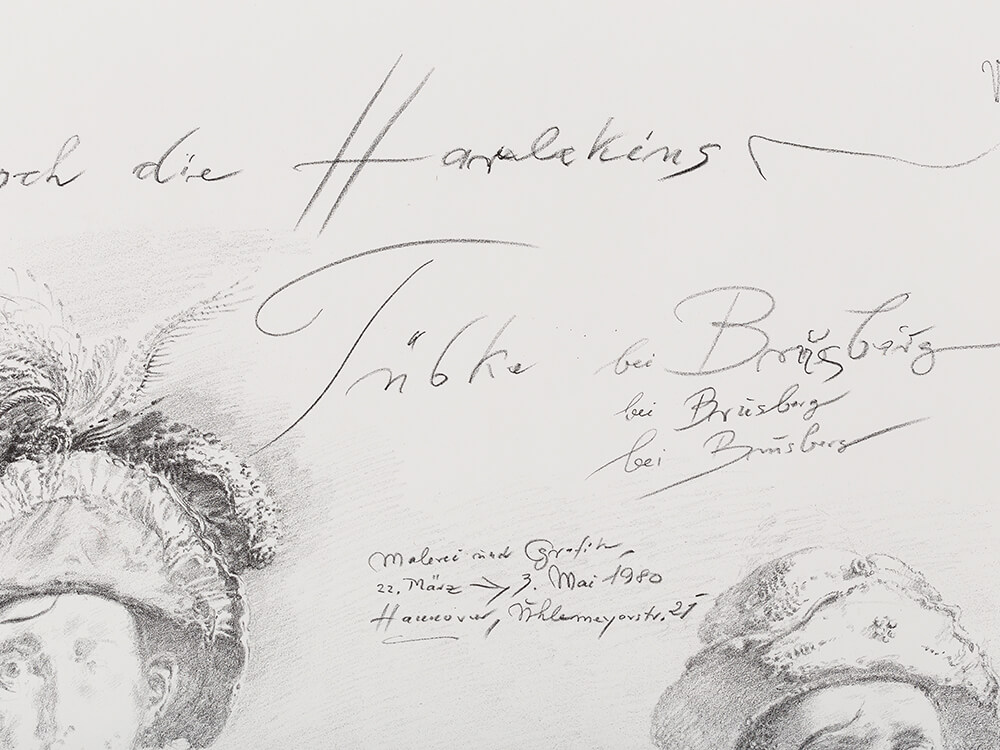 die Harlekins
Tübke bei Brusberg
bei Brusberg
bei Brusberg
Malerei und Grafik
22. März → 3. Mai 1980
Hannover, Uhlemeyerstr. 21